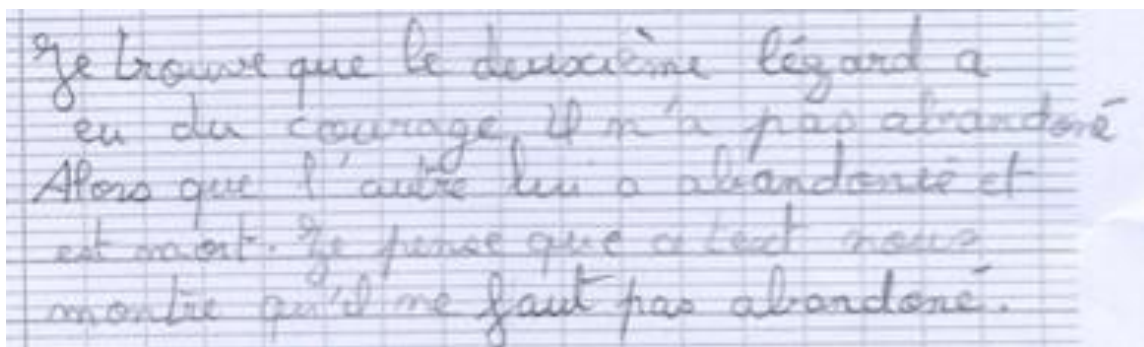 Je trouve que le deuxième lézard a
eu du courage, il n'a pas abandoné
Alors que l'autre lui a abandonné et
est mort. Je pense que ce text nous
montre qu'il ne faut pas abandoné.